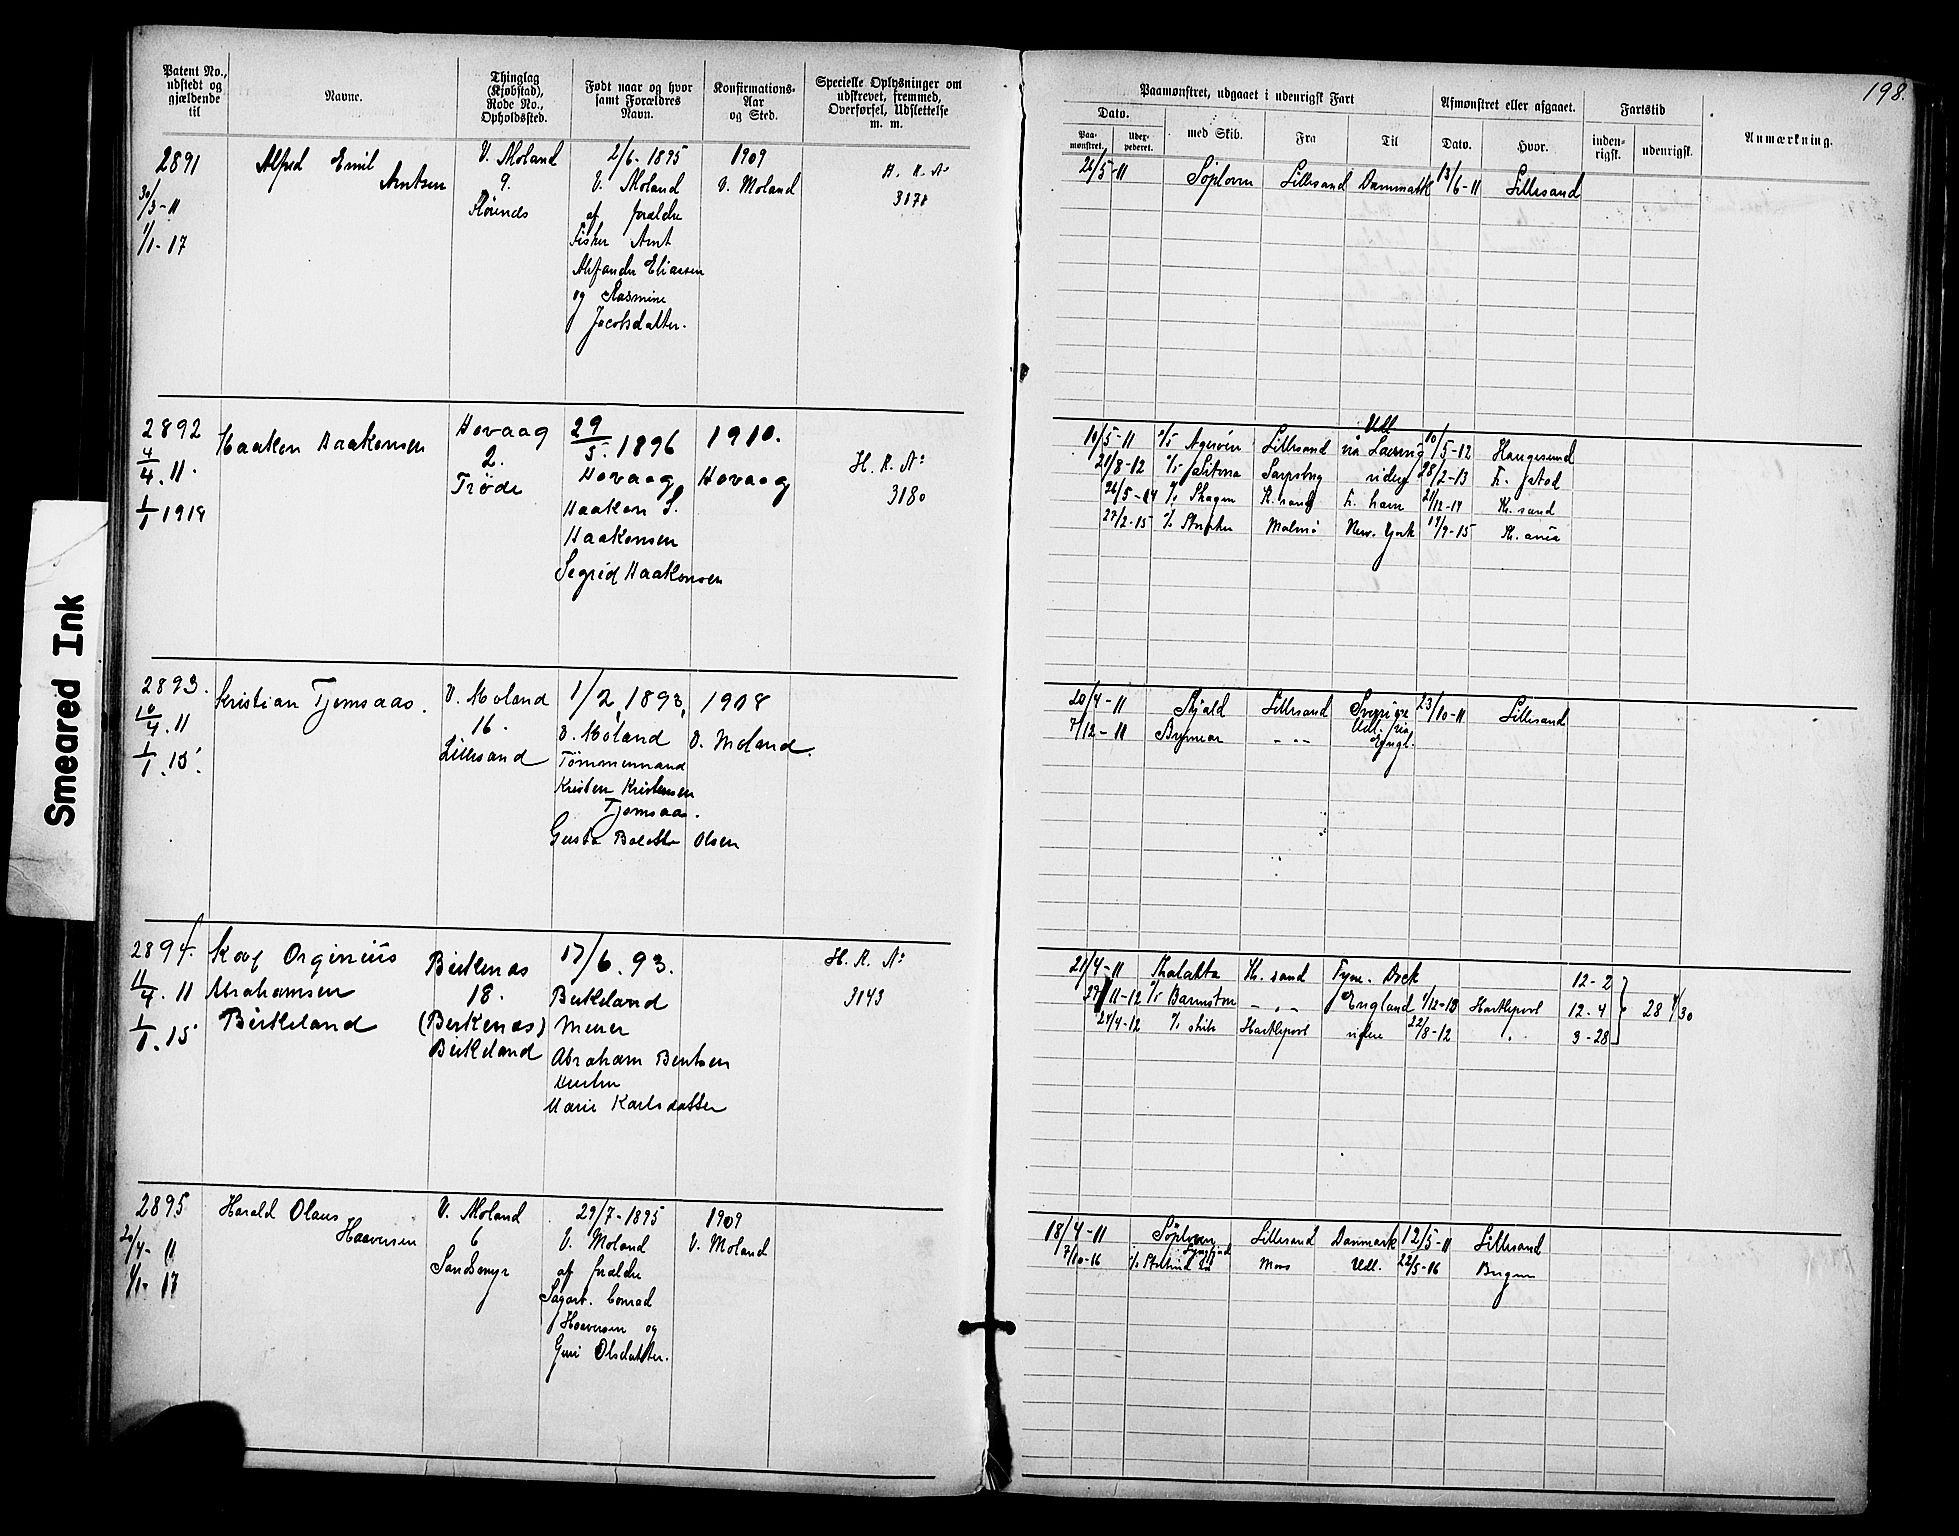 198.
Patent No., udstedt og gjældende til
Navne.
Thinglag (Kjøbstad), Rode No., Opholdssted.
Født naar og hvor samt Forældres Navn.
Konfirmations-Aar og Sted.
Specielle Oplysninger om udskrevet, fremmed, Overførsel, Udslettelse m. m.
Paamønstret, udgaaet i udenrigsk Fart
Afmønstret eller afgaaet.
Fartstid
Anmærkning.
Dato.
Paa-mønstret.
med Skib.
Fra
Til
Dato.
Hvor.
inden-rigsk.
udenrigsk.
2891
30/3-11
1/1-17
Alfred Emil
Arntsen
V. Moland
9.
2/6-1895
V. Moland
af forældre
Fisker Arnt
Alexander Eliassen
og Rasmine
Jacobsdatter.
1909
V. Moland
H. R. No
3178
26/5-11 Søploven Lillesand Danmark 13/6-11 Lillesand
2892
4/4.11.
1/1 1918
Haakon Haakonsen
Hovaag
2.
Trøde
29/5.1896
Hovaag
Haakon S.
Haakonsen
Segrid Haakonsen
1910.
Hovaag
H. R. No
3180
Udl
10/5-11 Lillesand via 10/5-12 Haugesund
21/8-12 Sarpsborg videre 28/2-13
26/5-14 Skagen K. sand F. havn 21/12-14 K. sand
27/2-15 Malmø New. York 14/9-15 K. ania
2893.
10/4.11
1/1.15.
Kristian Tjomsaas.
V. Moland
16.
Lillesand
1/2, 1893,
V. Moland
Tømmermand
Kristen Kristensen
Tjomsaas.
Gusta Bolette Olsen
1908
V. Moland.
20/4-11 Skjald Lillesand Sverige 23/10-11 Lillesand
7/12-11 - „ - Udl. via Engl.
2894.
11/4.11
1/1.15
Orginius
Abrahamsen
Birkeland
Birkenæs
18.
(Birkenæs)
Birkeland
17/6.93.
Birkeland
Murer
Abraham Bentsen
Marie Karlsdatter
H. R. No
3143
21/4-11 K. sand Tyne. Dock 12-2
11-12 - „ - England 1/12-13 Hartlepool 12-4
24/4-12 Hartlepool videre 22/8-12 „ 3-28
28 4/30
2895
20/4-11
1/1-17
Harald Olaus
Haavorsen
V. Moland
6
Sandsmyr
29/7-1895
V. Moland
af forældre
Sagarb. Conrad
Haavorsen og
Guri Olsdatter.
1909
V. Moland
18/4-11 Søploven Lillesand Danmark 12/5-11 Lillesand
7/10-16 Moss Udl. 22/5-16 Bergen
Smeared Ink